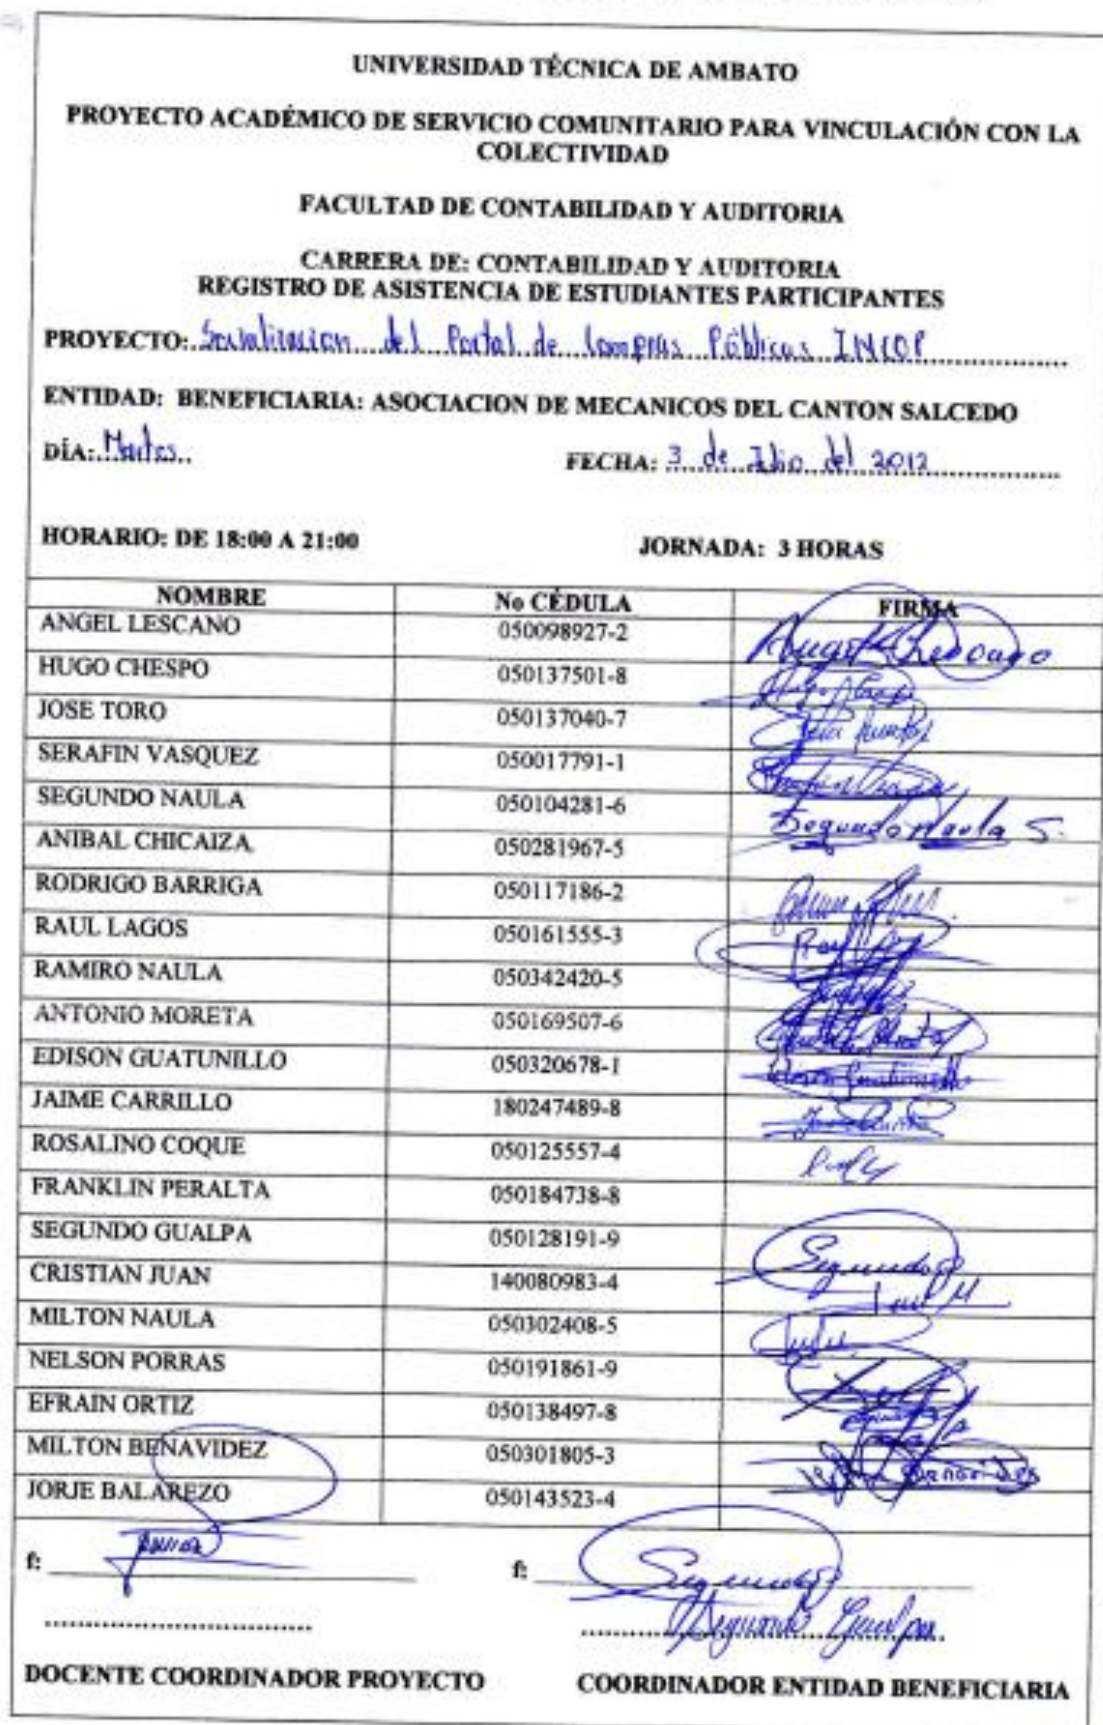 UNIVERSIDAD TÉCNICA DE AMBATO
PROYECTO ACADÉMICO DE SERVICIO COMUNITARIO PARA VINCULACIÓN CON LA
COLECTIVIDAD
FACULTAD DE CONTABILIDAD Y AUDITORIA
CARRERA DE: CONTABILIDAD Y AUDITORIA
REGISTRO DE ASISTENCIA DE ESTUDIANTES PARTICIPANTES
PROYECTO: Socialización del Portal de Compras Públicas INCOP
ENTIDAD: BENEFICIARIA: ASOCIACION DE MECANICOS DEL CANTON SALCEDO
DÍA: Martes FECHA: 3 de Julio del 2012
HORARIO: DE 18:00 A 21:00 JORNADA: 3 HORAS
NOMBRE No CÉDULA FIRMA
ANGEL LESCANO 050098927-2 Angel Lescano
HUGO CHESPO 050137501-8
JOSE TORO 050137040-7
SERAFIN VASQUEZ 050017791-1
SEGUNDO NAULA 050104281-6 Segundo Naula S.
ANIBAL CHICAIZA 050281967-5
RODRIGO BARRIGA 050117186-2
RAUL LAGOS 050161555-3
RAMIRO NAULA 050342420-5
ANTONIO MORETA 050169507-6
EDISON GUATUNILLO 050320678-1
JAIME CARRILLO 180247489-8
ROSALINO COQUE 050125557-4
FRANKLIN PERALTA 050184738-8
SEGUNDO GUALPA 050128191-9 Segundo
CRISTIAN JUAN 140080983-4
MILTON NAULA 050302408-5
NELSON PORRAS 050191861-9
EFRAIN ORTIZ 050138497-8
MILTON BENAVIDEZ 050301805-3
JORJE BALAREZO 050143523-4
f: f: Segundo
Segundo Gualpa
DOCENTE COORDINADOR PROYECTO COORDINADOR ENTIDAD BENEFICIARIA